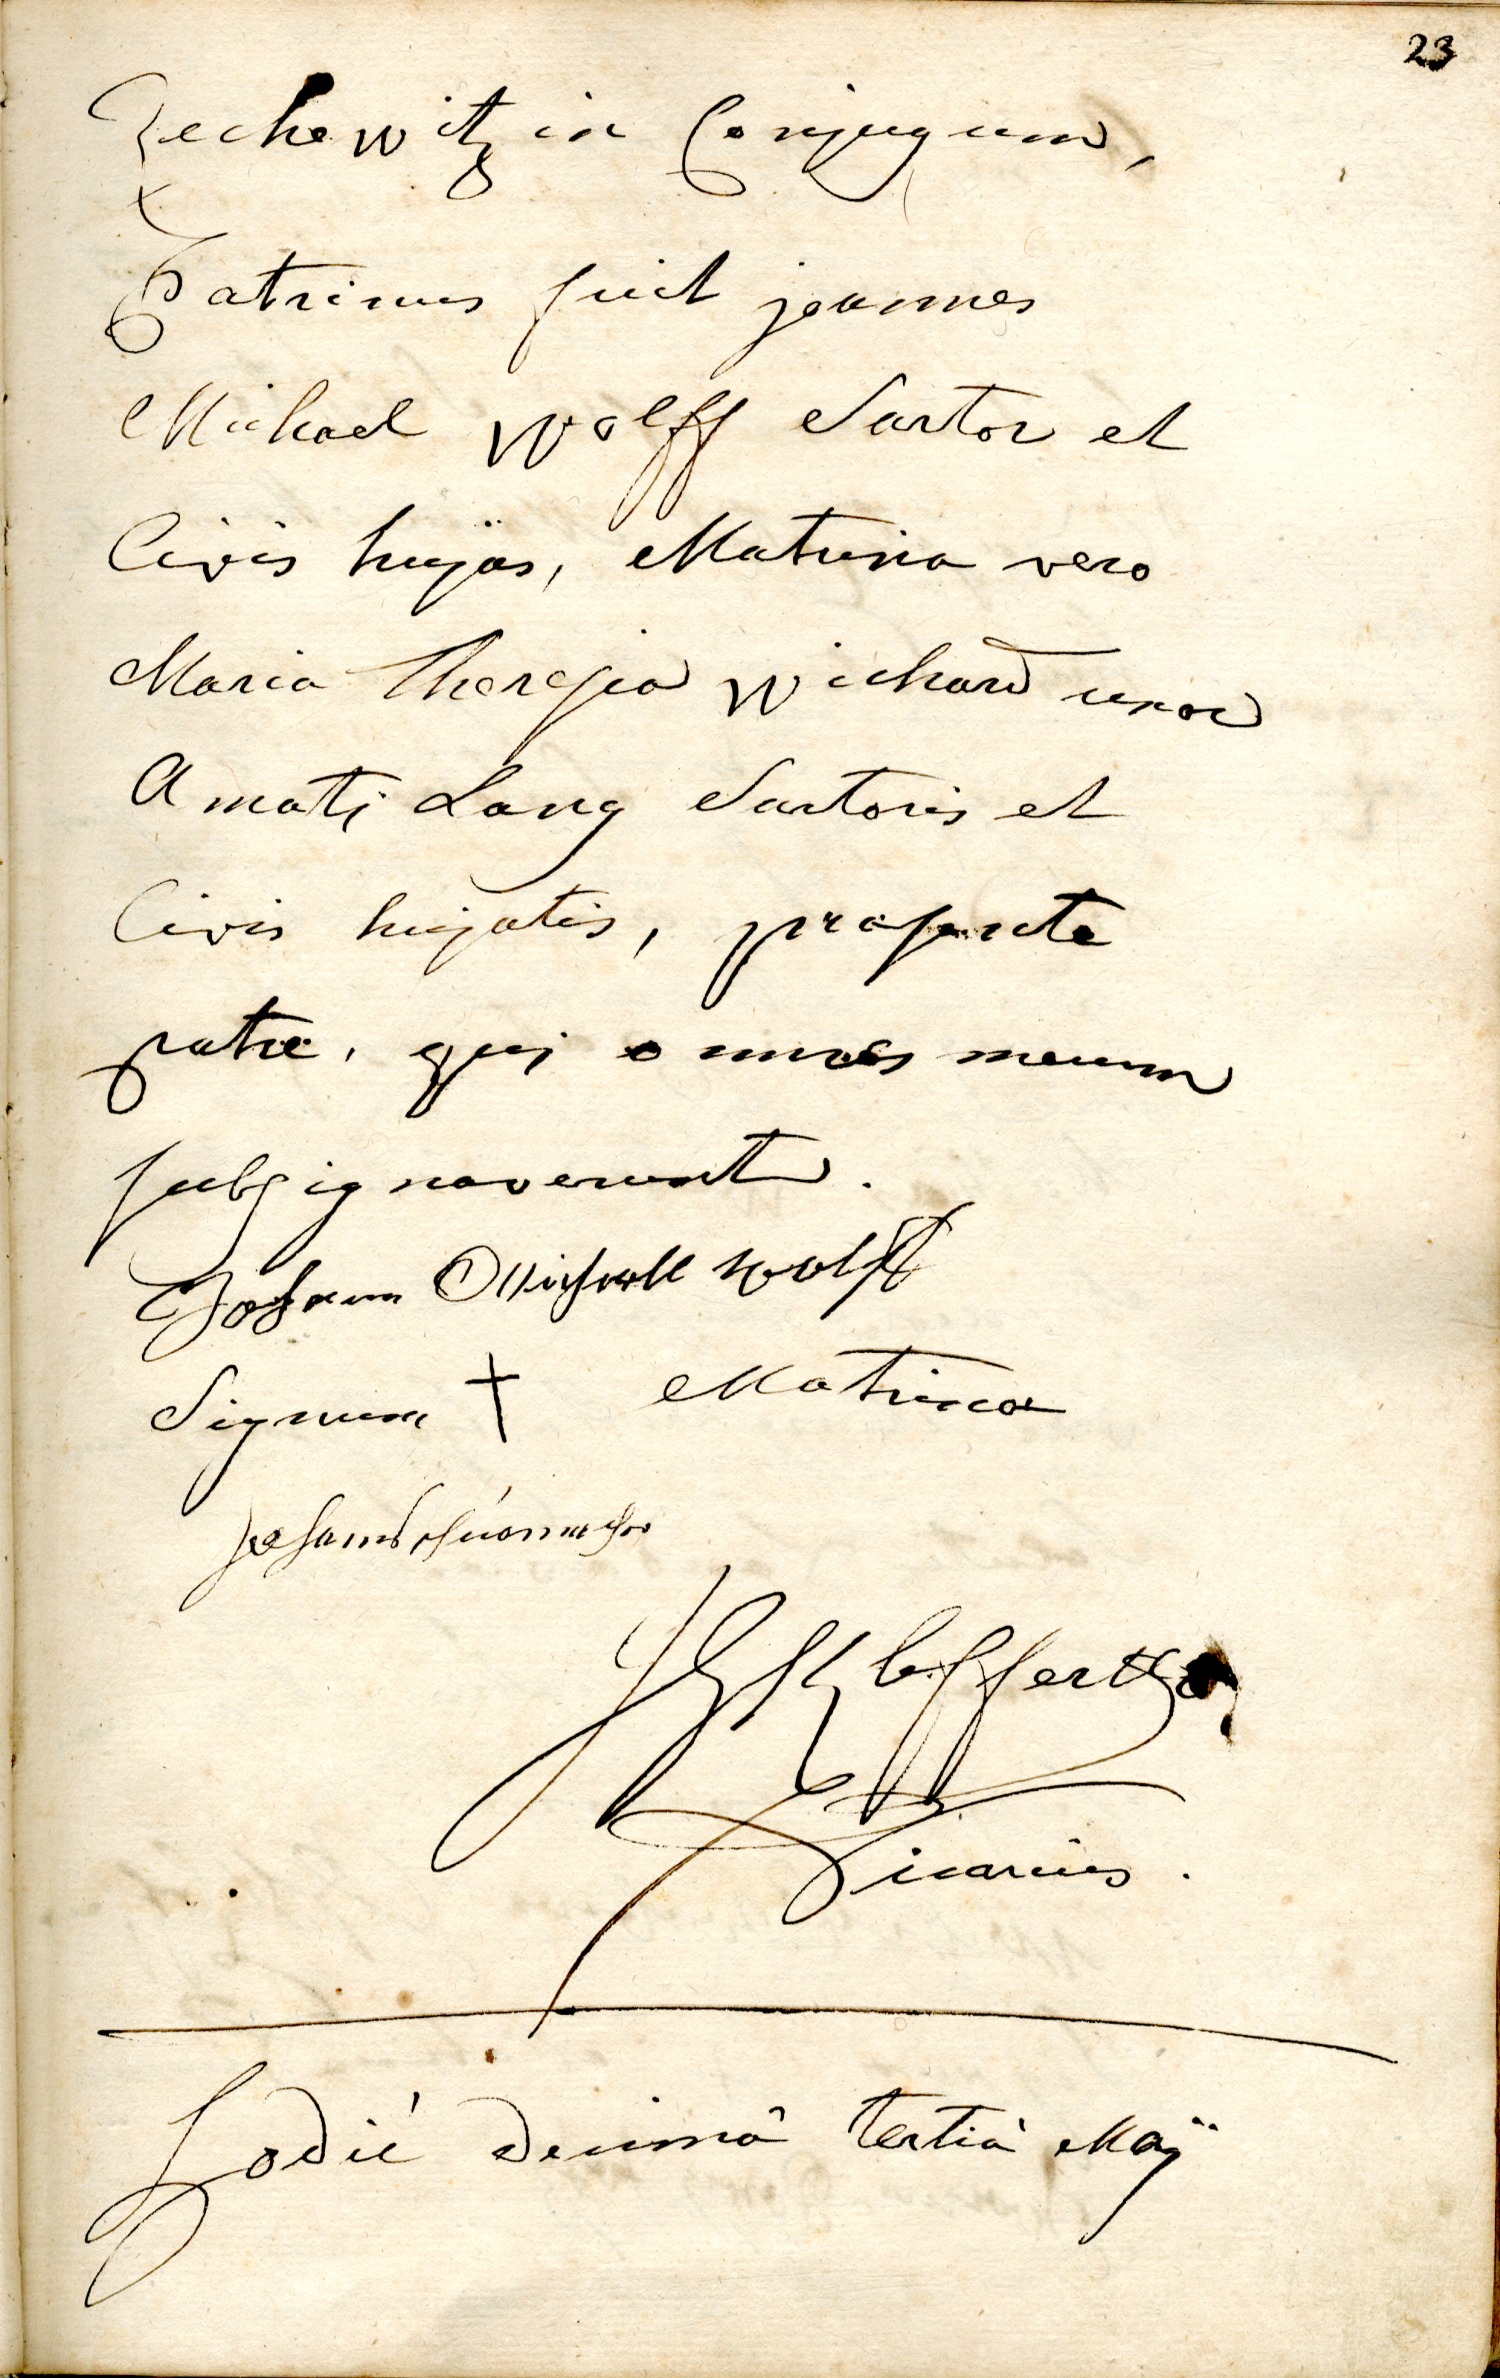 23
Zechewitzin Conjugum,
Patrinus fuit joannes
Michael Wolff Sartor et
Civis hujas, Matrina vero
Maria Theresia Wichard uxor
Amati Lang Sartoris et
Civis hujatis, præsente
patre, qui omnes mecum
subsignaverunt.
Johann Michaell Wolff
Signum † Matrinæ
Vicarius.
hodié decimâ tertiâ Maÿ